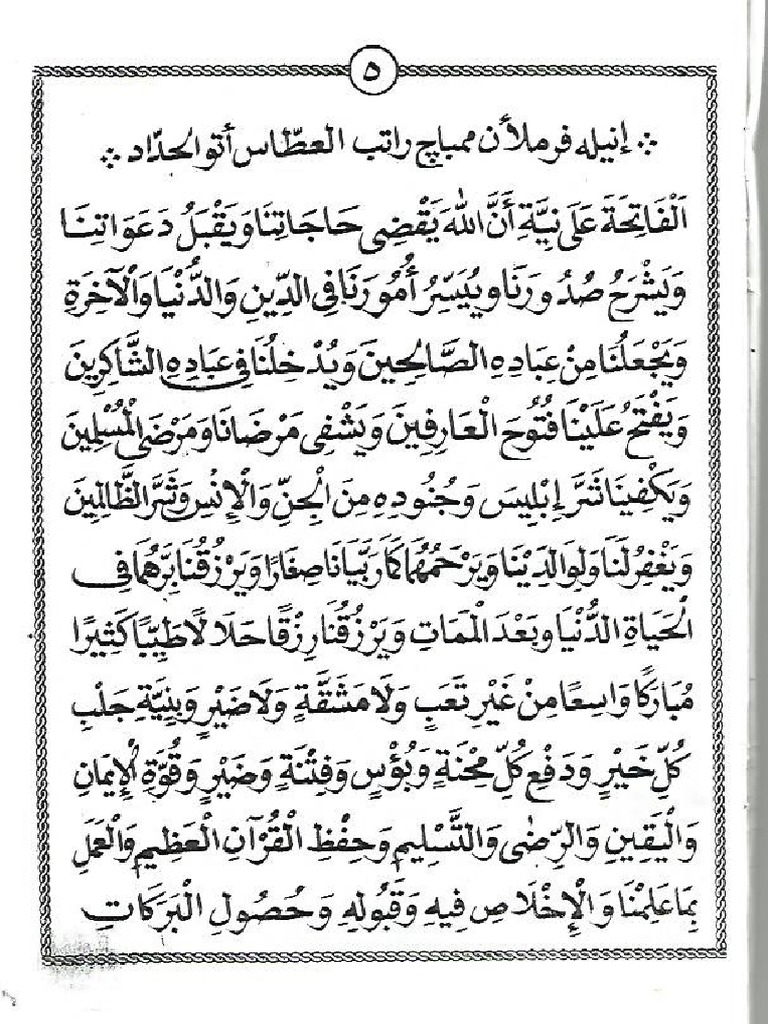 ٥
إنيله فرملأن ممباچ راتب العطّاس أتو الحدّاد
اَلْفَاتِحَةَ عَلَى نِيَّةِ أَنَّ اللهَ يَقْضِى حَاجَاتِنَا وَيَقْبَلُ دَعَوَاتِنَا
وَيَشْرَحُ صُدُورَنَا وَيُيَسِّرُ أُمُورَنَا فِى الدِّينِ وَالدُّنْيَا وَالْآخِرَةِ
وَيَجْعَلُنَا مِنْ عِبَادِهِ الصَّالِحِينَ وَيُدْخِلُنَا فِى عِبَادِهِ الشَّاكِرِينَ
وَيَفْتَحُ عَلَيْنَا فُتُوحَ الْعَارِفِينَ وَيَشْفِى مَرْضَانَا وَمَرْضَى الْمُسْلِمِينَ
وَيَكْفِينَا شَرَّ إِبْلِيسَ وَجُنُودِهِ مِنَ الْجِنِّ وَالْإِنْسِ وَشَرَّ الظَّالِمِينَ
وَيَغْفِرُ لَنَا وَلِوَالِدَيْنَا وَيَرْحَمُهُمَا كَمَا رَبَّيَانَا صِغَارًا وَيَرْزُقُنَا بِرَّهُمَا فِى
الْحَيَاةِ الدُّنْيَا وَبَعْدَ الْمَمَاتِ وَيَرْزُقُنَا رِزْقًا حَلَالًا طَيِّبًا كَثِيرًا
مُبَارَكًا وَاسِعًا مِنْ غَيْرِ تَعَبٍ وَلَا مَشَقَّةٍ وَلَا ضَيْرٍ وَبِنِيَّةِ جَلْبِ
كُلِّ خَيْرٍ وَدَفْعِ كُلِّ مِحْنَةٍ وَبُؤْسٍ وَفِتْنَةٍ وَضَيْرٍ وَقُوَّةِ الْإِيمَانِ
وَالْيَقِينِ وَالرِّضَى وَالتَّسْلِيمِ وَحِفْظِ الْقُرْآنِ الْعَظِيمِ وَالْعَمَلِ
بِمَا عَلِمْنَا وَالْإِخْلَاصِ فِيهِ وَقَبُولِهِ وَحُصُولِ الْبَرَكَاتِ